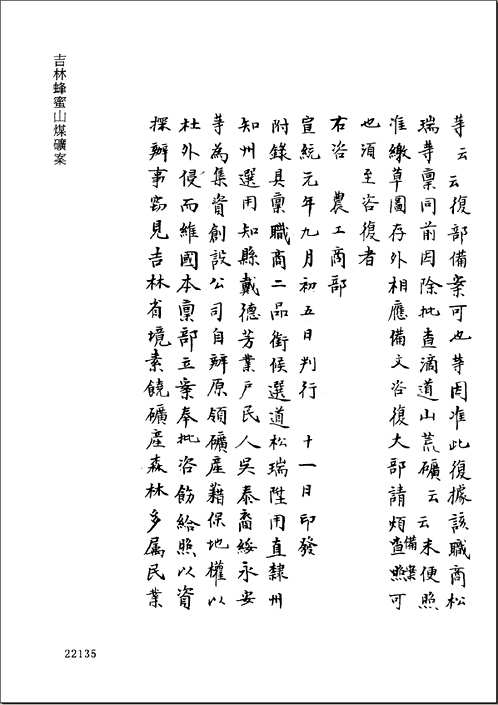 吉林蜂蜜山煤礦案
等云云復部備案可也等因准此復據該職商松
瑞等稟同前因除批查滴道山荒礦云云未便照
准繳草圖存外相應備文咨復大部請煩查照備案可
也須至咨復者
右咨 農工商部
宣統元年九月初五日判行 十一日印發
附錄具稟職商二品銜候選道松瑞陞用直隸州
知州選用知縣戴德芳業戶民人吳泰裔綏永安
等為集資創設公司自辦原領礦產藉保地權以
杜外侵而維國本稟部立案奉批咨飭給照以資
探辦事竊見吉林省境素饒礦產森林多属民業
22135